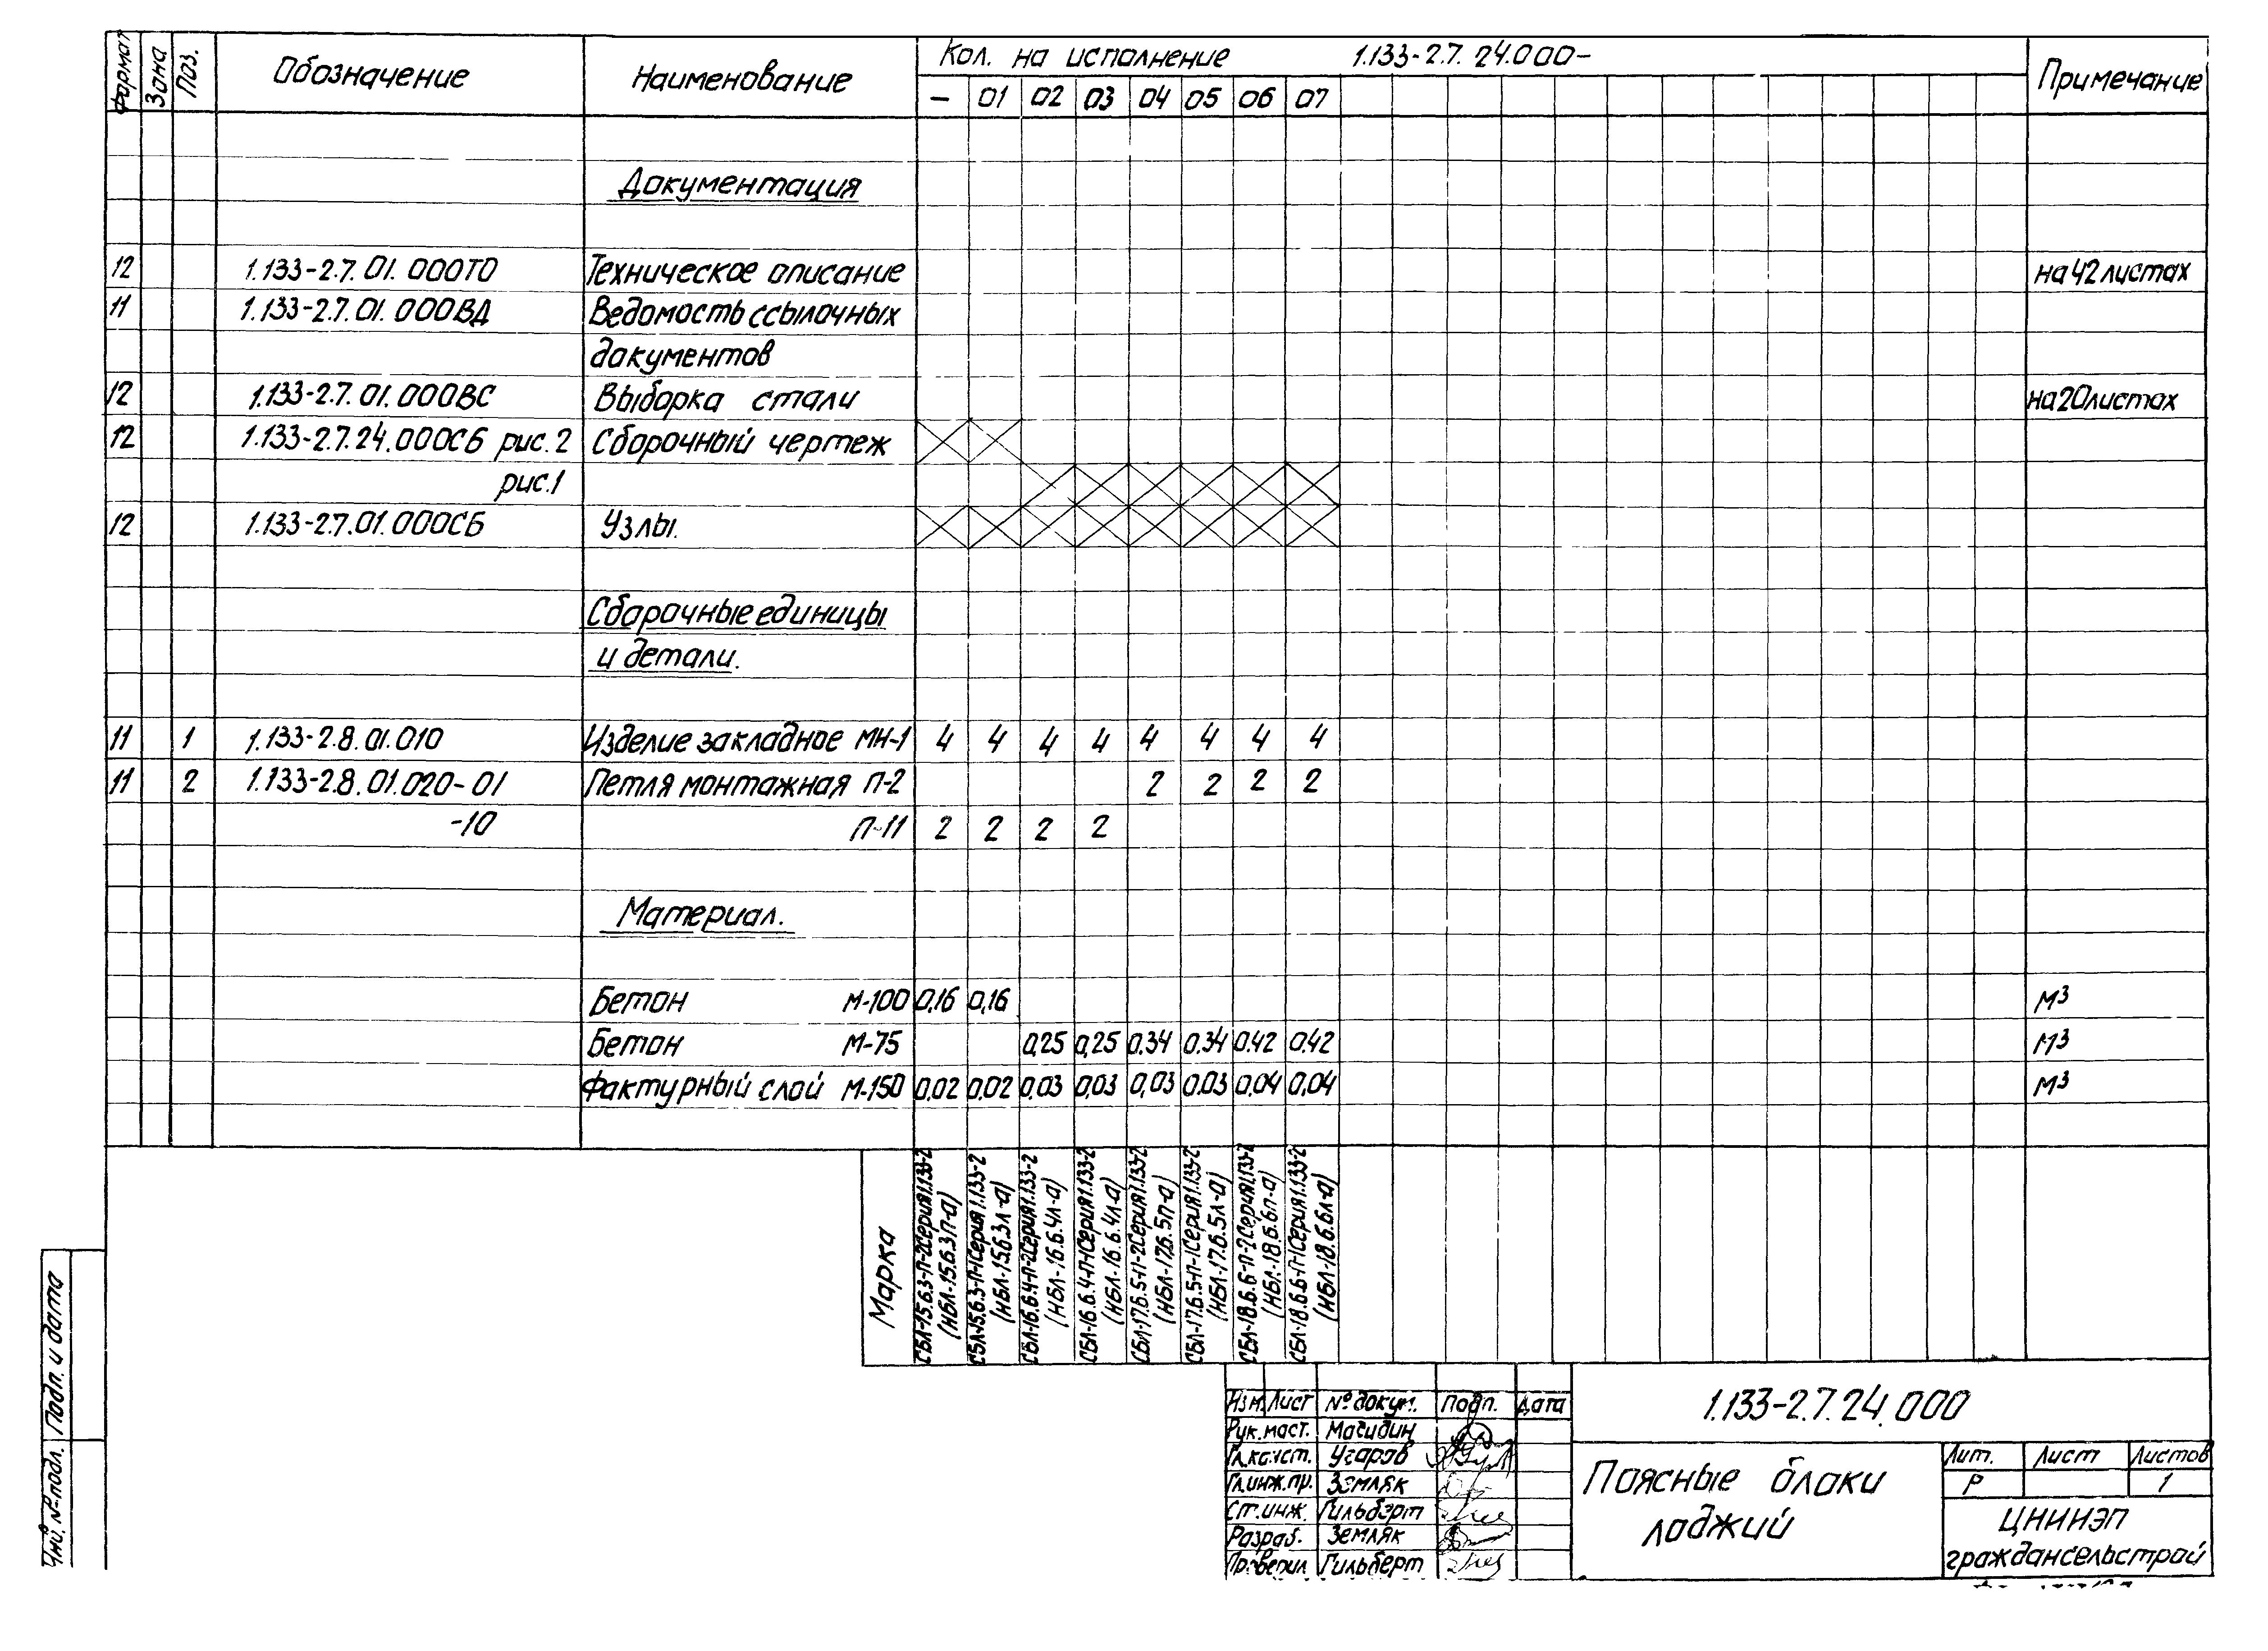 Формат Зона Поз. Обозначение Наименование Кол. на исполнение 1.133-2.7. 24.000- Примечание
– 01 02 03 04 05 06 07
Документация
12 1.133-2.7. 01. 000ТО Техническое описание на 42 листах
11 1.133-2.7. 01. 000ВД Ведомость ссылочных
документов
12 1.133-2.7. 01. 000ВС Выборка стали на 20 листах
12 1.133-2.7. 24. 000СБ рис. 2 Сборочный чертеж
рис. 1
12 1.133-2.7. 01. 000СБ Узлы.
Сборочные единицы
и детали.
11 1 1.133-2.8. 01. 010 Изделие закладное МН-1 4 4 4 4 4 4 4 4
11 2 1.133-2.8. 01. 020-01 Петля монтажная П-2 2 2 2 2
-10 П-11 2 2 2 2
Материал.
Бетон М-100 0,16 0,16 м3
Бетон М-75 0,25 0,25 0.34 0.34 0.42 0.42 м3
Фактурный слой М-150 0,02 0,02 0,03 0,03 0,03 0.03 0,04 0,04 м3
Марка
СБЛ-15.6.3-П-2 Серия 1.133-2
(НБЛ-15.6.3П-а)
СБЛ-15.6.3-П-1 Серия 1.133-2
(НБЛ-15.6.3Л-а)
СБЛ-16.6.4-П-2 Серия 1.133-2
(НБЛ-16.6.4Л-а)
СБЛ-16.6.4-П-1 Серия 1.133-2
(НБЛ-16.6.4Л-а)
СБЛ-17.6.5-П-2 Серия 1.133-2
(НБЛ-17.6.5П-а)
СБЛ-17.6.5-П-1 Серия 1.133-2
(НБЛ-17.6.5Л-а)
СБЛ-18.6.6-П-2 Серия 1.133-2
(НБЛ-18.6.6П-а)
СБЛ-18.6.6-П-1 Серия 1.133-2
(НБЛ-18.6.6Л-а)
Подп. и дата
Инв. № подл.
Изм. Лист № докум. Подп. Дата
Рук. маст. Магидин
Гл.конст. Угаров
Гл.инж.пр. Земляк
Ст.инж. Гильберт
Разраб. Земляк
Проверил Гильберт
1.133-2.7. 24. 000
Поясные блоки
лоджий
Лит. Лист Листов
Р 1
ЦНИИЭП
граждансельстрой